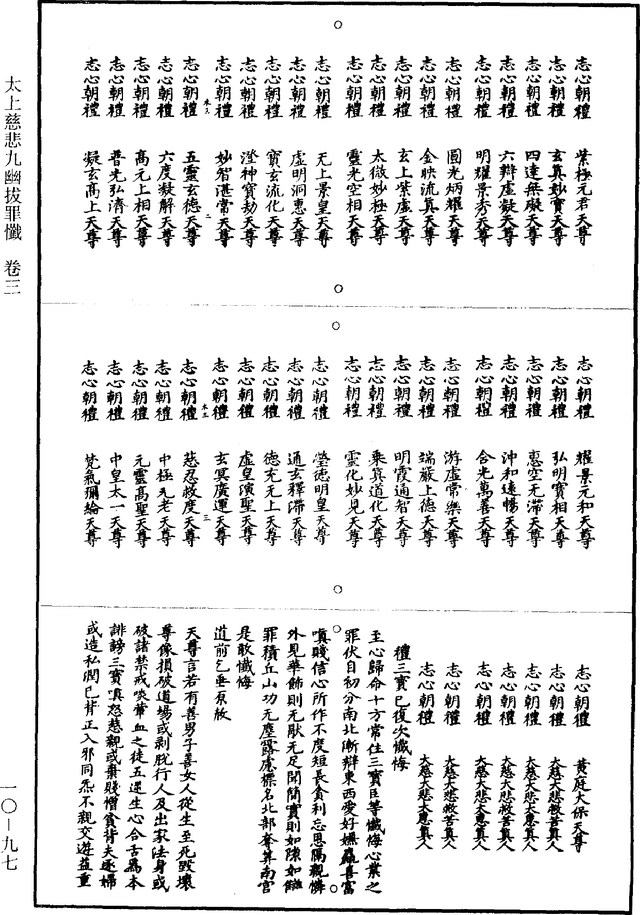 太上慈悲九幽拔罪懺 卷三
一〇－九七
志心朝禮 紫極元君天尊
志心朝禮 玄真妙寶天尊
志心朝禮 四達無礙天尊
志心朝禮 六辯虛凝天尊
志心朝禮 明耀景秀天尊
志心朝禮 圓光炳耀天尊
志心朝禮 金映流真天尊
志心朝禮 玄上紫虛天尊
志心朝禮 太微妙極天尊
志心朝禮 靈光空相天尊
志心朝禮 无上景皇天尊
志心朝禮 虛明洞惠天尊
志心朝禮 寶玄流化天尊
志心朝禮 澄神寶劫天尊
志心朝禮 妙智湛常天尊
志心朝禮 五靈玄德天尊
志心朝禮 六度凝解天尊
志心朝禮 高元上相天尊
志心朝禮 普光弘濟天尊
志心朝禮 凝玄高上天尊
志心朝禮 耀景元和天尊
志心朝禮 弘明寶相天尊
志心朝禮 惠空无滯天尊
志心朝禮 沖和遠暢天尊
志心朝禮 含光萬善天尊
志心朝禮 游虛常樂天尊
志心朝禮 端嚴上德天尊
志心朝禮 明霞通智天尊
志心朝禮 乘真道化天尊
志心朝禮 靈化妙見天尊
志心朝禮 瑩德明皇天尊
志心朝禮 通玄釋滯天尊
志心朝禮 德充无上天尊
志心朝禮 虛皇演聖天尊
志心朝禮 玄冥廣運天尊
志心朝禮 慈忍救度天尊
志心朝禮 中極元老天尊
志心朝禮 元靈高聖天尊
志心朝禮 中皇太一天尊
志心朝禮 梵氣彌綸天尊
志心朝禮 黃庭大保天尊
志心朝禮 大慈大悲救苦真人
志心朝禮 大慈大悲大惠真人
志心朝禮 大慈大悲救苦真人
志心朝禮 大慈大悲大惠真人
志心朝禮 大慈大悲救苦真人
志心朝禮 大慈大悲大惠真人
禮三寶已復次懺悔
至心歸命十方常住三寶臣等懺悔心業之
罪伏自初分南北漸辯東西愛好嫌麤喜富
嗔賤信心所作不度短長貪利忘恩隔親憐
外見華飾則无猒无足聞簡實則如陳如
罪積丘山功无塵露慮標名北部奪筭南宮
是敢懺悔
道前乞垂原赦
天尊言若有善男子善女人從生至死毀壞
尊像損破道場或剥脫行人及出家法身或
破諸禁戒啖葷血之徒五逆生心合舌為本
誹謗三寶嗔怒慈親或棄賤憎貧背夫逐婦
或造私潤已背正入邪同炁不親交遊益重